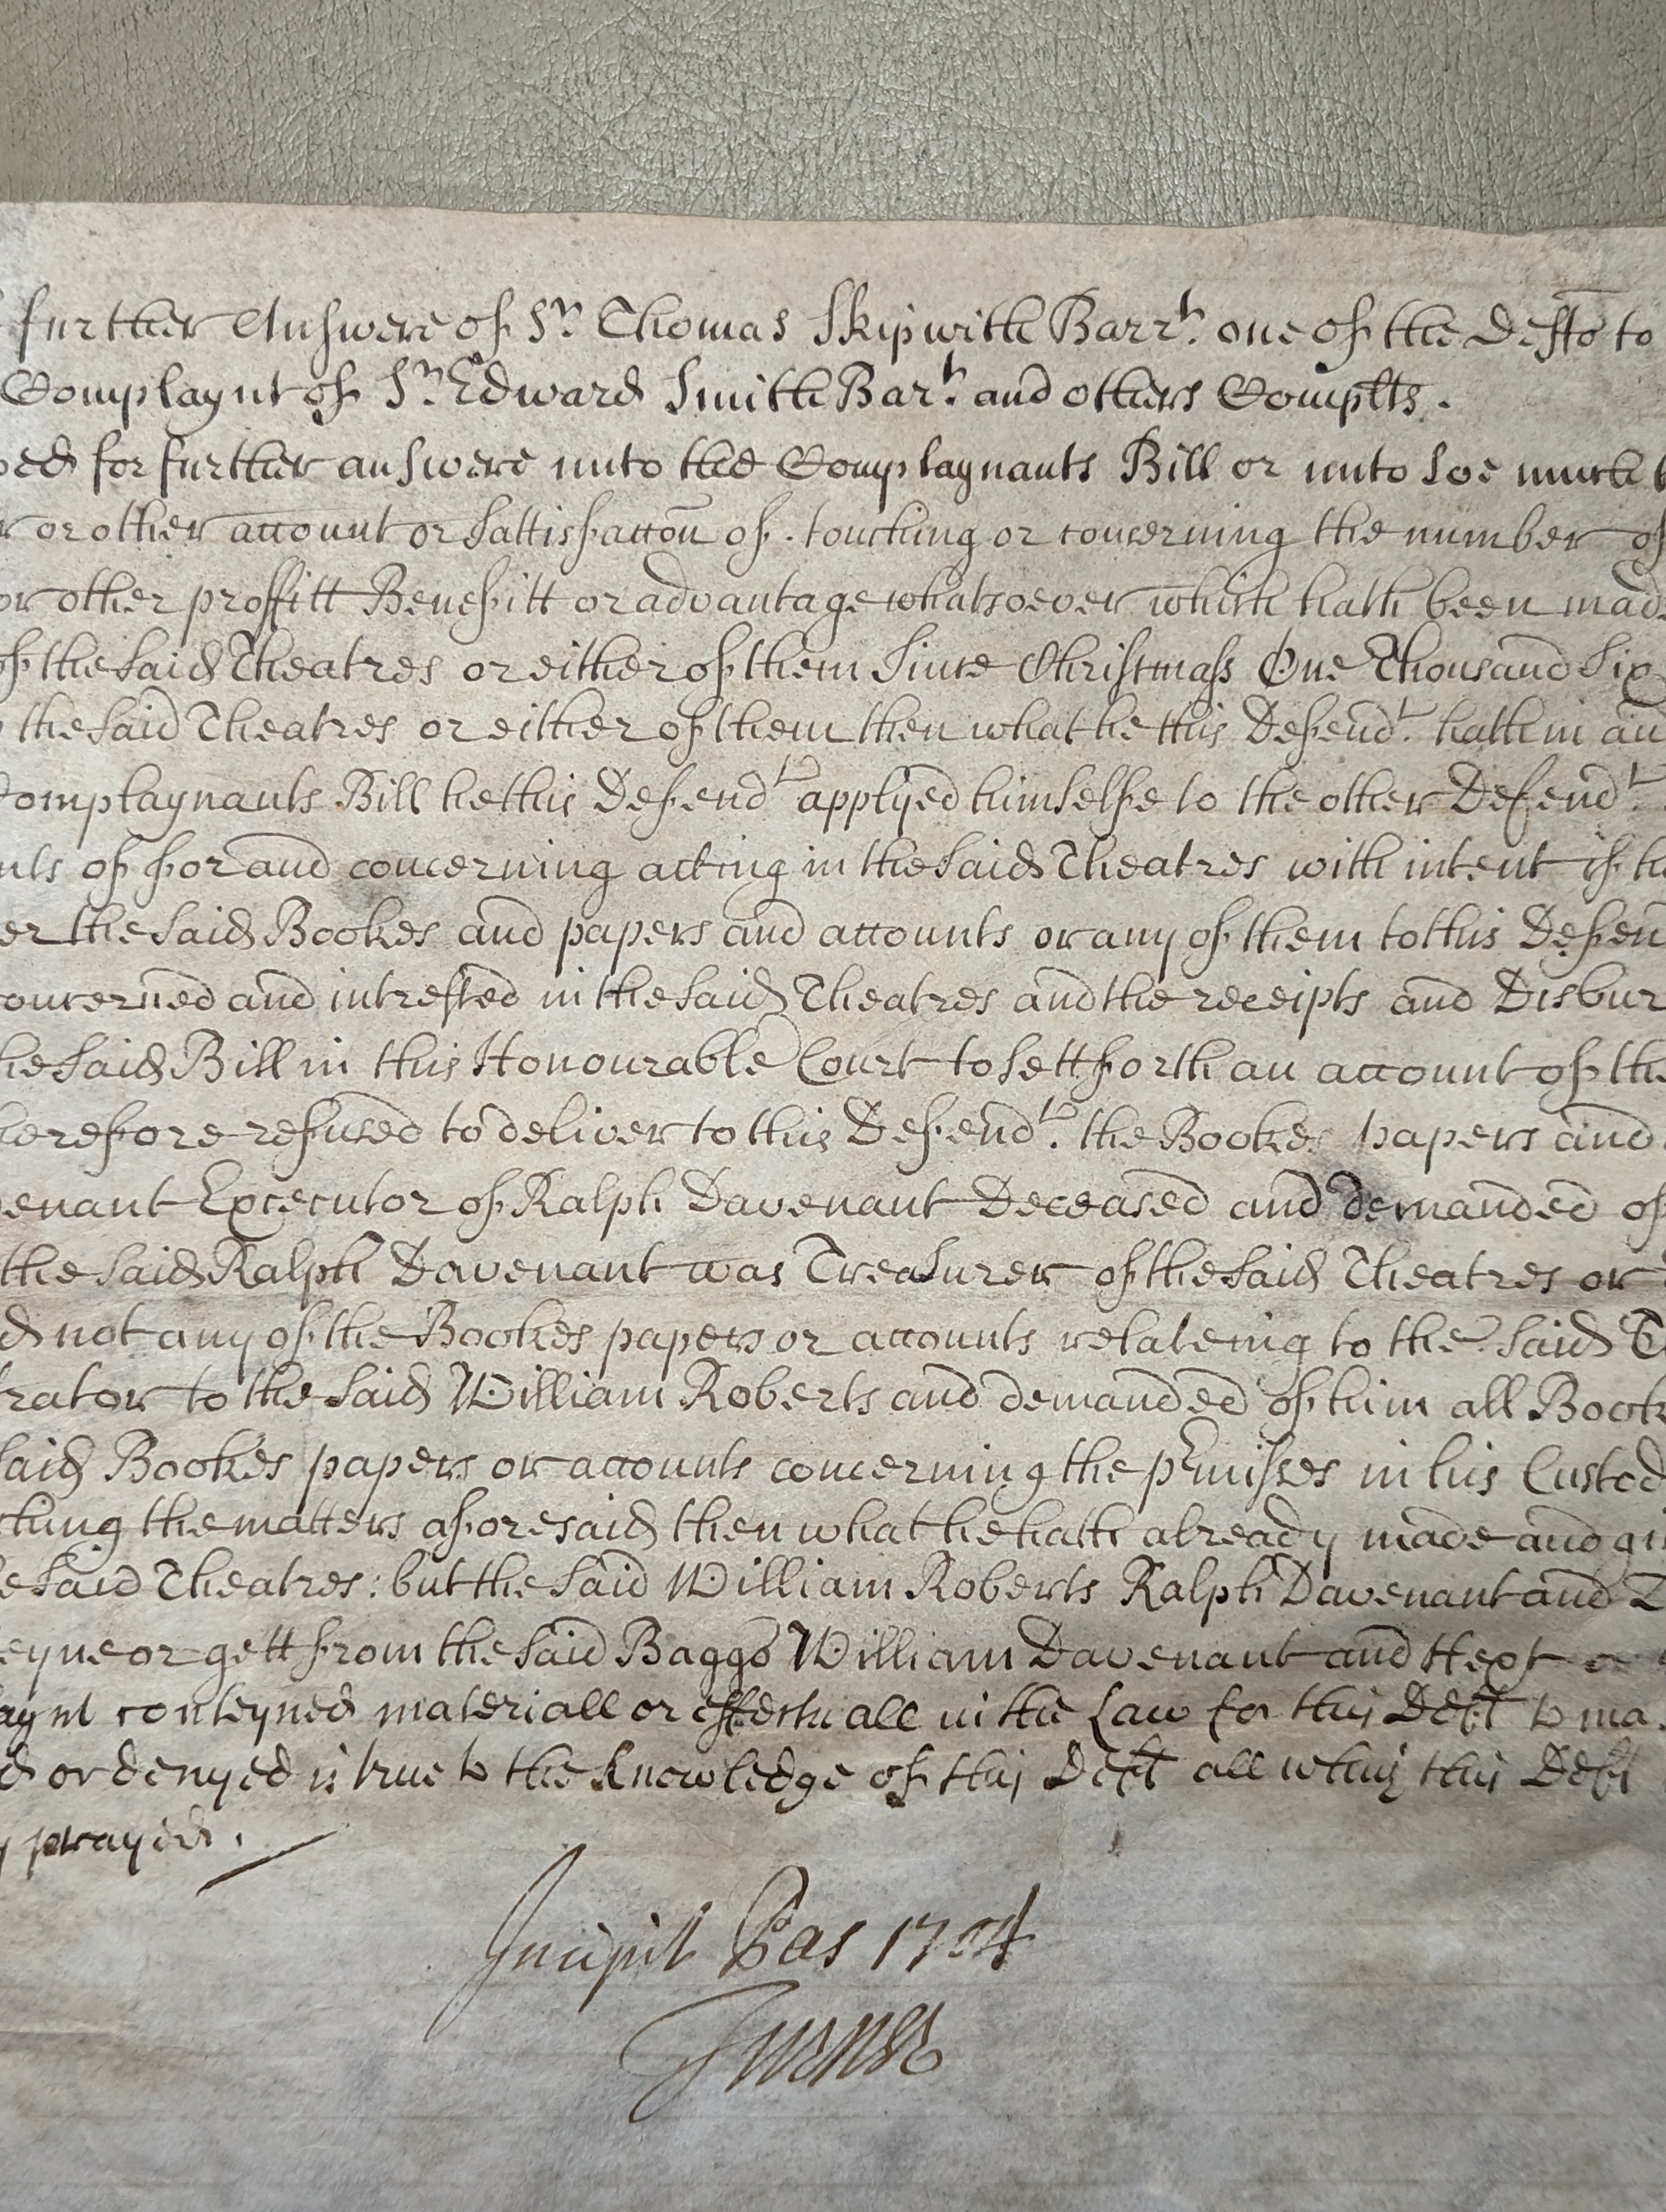 further Answere of Sr. Thomas Skipwith Barrt. one of the Defts to
Complaynt of Sr. Edward Smith Bart. and others Complts.
for further answere unto the Complaynants Bill or unto soe much
or other account or sattisfaccon of. touching or concerning the number of
or other proffitt Benefitt or advantage whatsoever which hath been made
of the said Theatres or either of them Since Christmass One Thousand Six
the said Theatres or either of them then what he this Defendt. hath in an
Complaynants Bill he this Defendt applyed himselfe to the other Defendt.
nts of for and concerning acting in the said Theatres with intent if he
er the said Bookes and papers and accounts or any of them to this Defen
concerned and intressted in the said Theatres and the receipts and Disbur
the said Bill in this Honourable Court to sett forth an account of the
therefore refused to deliver to this Defendt. the Bookes papers and
enant Excecutor of Ralph Davenant Deceased and demanded of
the said Ralph Davenant was Treasurer of the said Theatres or
d not any of the Bookes papers or accounts relateing to the said T
rator to the said William Roberts and demanded of him all Book
said Bookes papers or accounts concerning the pr̃misses in his Custod
ching the matters aforesaid then what he hath already made and gi
e said Theatres: but the said William Roberts Ralph Davenant and
eyne or gett from the said Baggs William Davenant and Kept
aynt conteyned materiall or effectuall in the Law for this Deft to ma
d or denyed is true to the Knowledge of this Deft all which this Deft
prayed.
Incipit Pas 1704
Turner